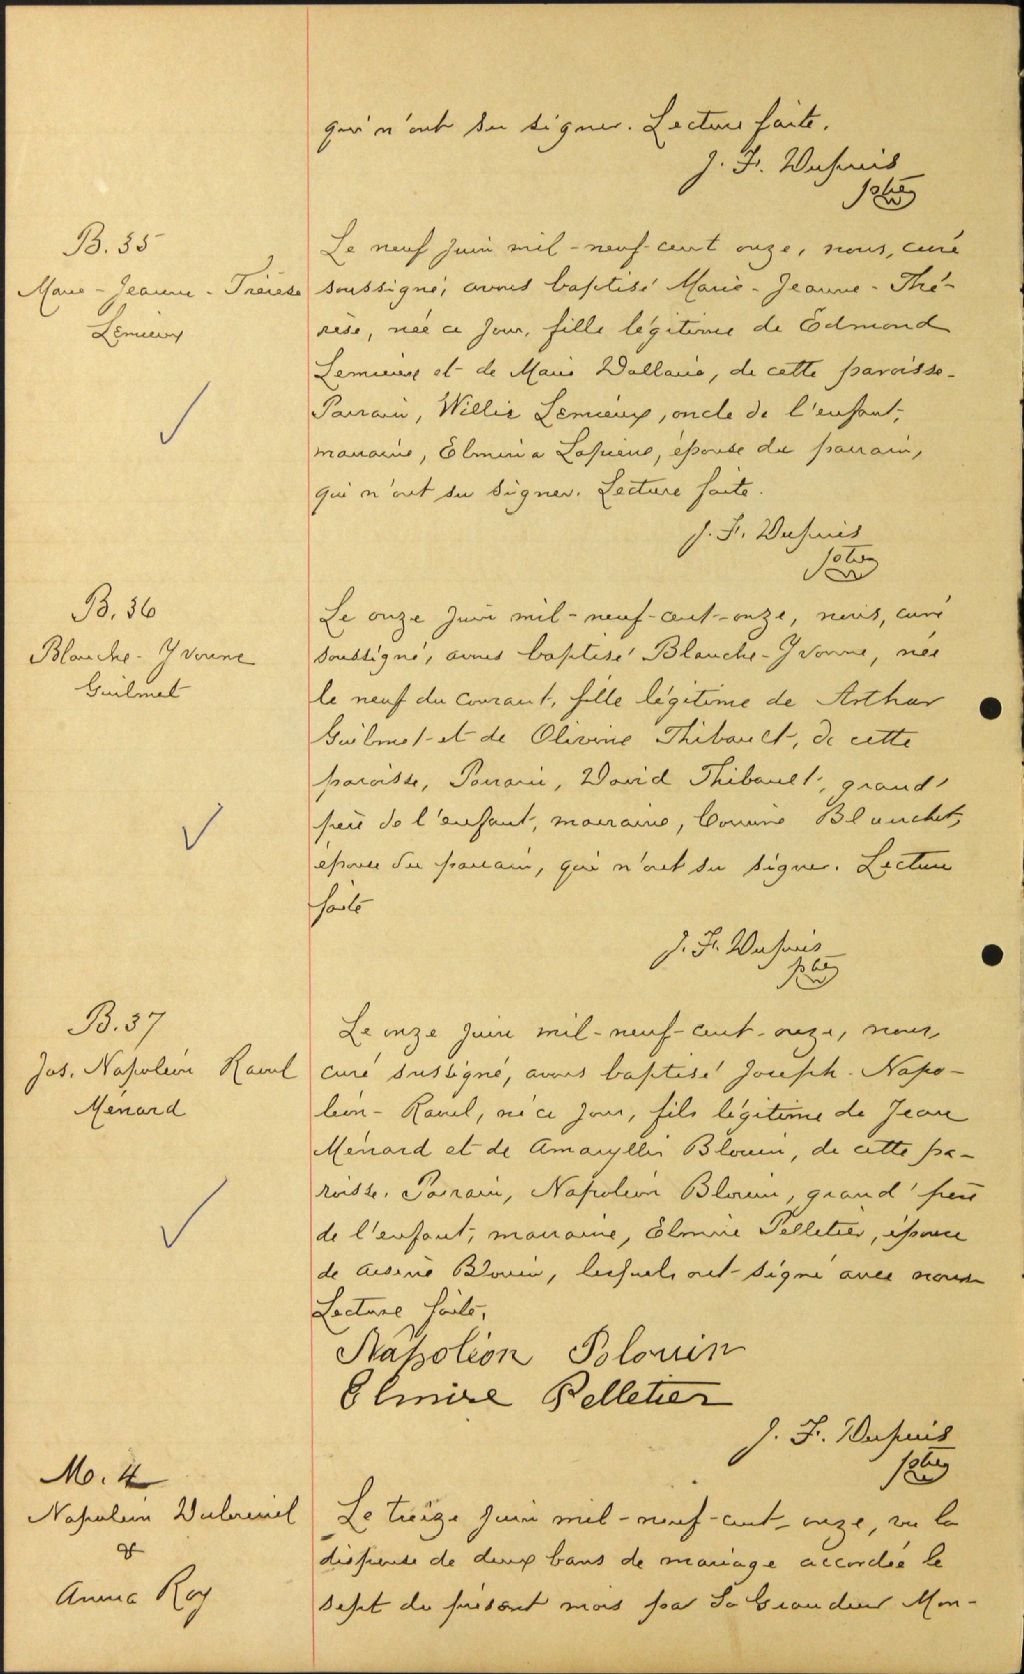 qui n'ont su signer. Lecture faite.
J. F. Dupuis
ptre
B. 35
Marie-Jeanne-Thérèse
Lemieux
Le neuf juin mil-neuf-cent onze, nous, curé
soussigné, avons baptisé Marie-Jeanne-Thé-
rèse, née ce jour, fille légitime de Edmond
Lemieux et de Marie Dallaire, de cette paroisse.
Parrain, Willie Lemieux, oncle de l'enfant,
marraine, Elmina Lapierre, épouse du parrain,
qui n'ont su signer. Lecture faite.
J. F. Dupuis
ptre
B. 36
Blanche-Yvonne
Guilmet
Le onze juin mil-neuf-cent-onze, nous, curé
soussigné, avons baptisé Blanche-Yvonne, née
le neuf du courant, fille légitime de Arthur
Guilmet et de Olivine Thibault, de cette
paroisse, Parrain, David Thibault, grand'
père de l'enfant, marraine, Blanchet,
épouse du parrain, qui n'ont su signer. Lecture
faite
J. F. Dupuis
ptre
B. 37
Jos. Napoléon Raoul
Ménard
Le onze juin mil-neuf-cent-onze, nous,
curé sussigné, avons baptisé Joseph-Napo-
léon-Raoul, né ce jour, fils légitime de Jean
Ménard et de Amaryllis Blouin, de cette pa-
roisse. Parrain, Napoléon Blouin, grand'père
de l'enfant, marraine, Elmire Pelletier, épouse
de Arsène Blouin, lesquels ont signé avec nous
Lecture faite.
Napoléon Blouin
Elmire Pelletier
J. F. Dupuis
ptre
M. 4
Napoléon Dubreuil
&
Anna Roy
Le treize juin mil-neuf-cent-onze, vu la
dispense de deux bans de mariage accordée le
sept du présent mois par Sa Grandeur Mon-